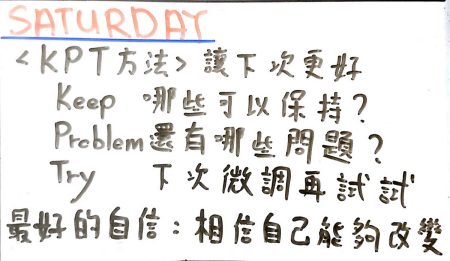 SATURDAY
<KPT方法> 讓下次更好
Keep 哪些可以保持?
Problem還有哪些問題?
Try 下次微調再試試
最好的自信:相信自己能夠改變